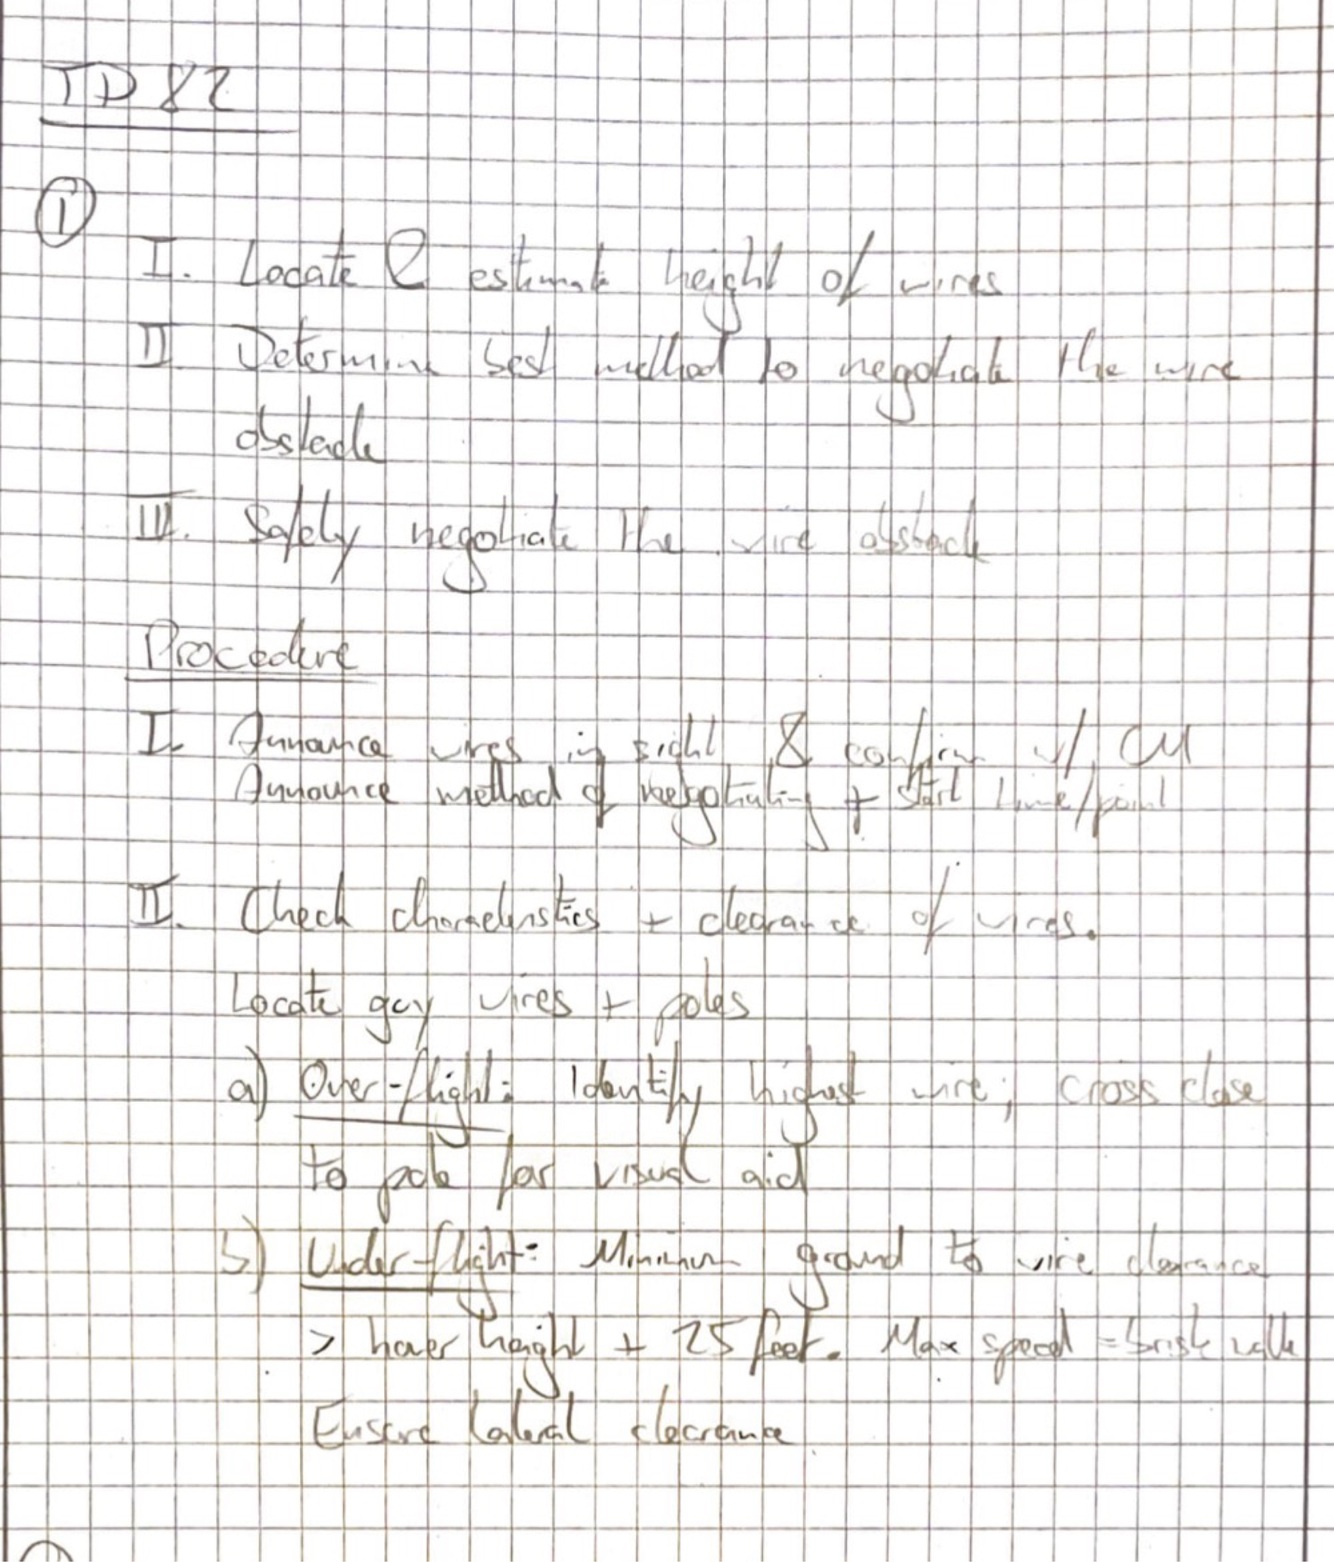 TD 82
①
I. Locate & estimate height of wires
II Determine best method to negotiate the wire
obstacle
III. Safely negotiate the wire obstacle
Procedure
I. Announce wires in sight & confirm w/ CM
Announce method of negotiating + start time/point
II. Check characteristics + clearance of wires.
Locate guy wires + poles
a) Over-flight: Identify highest wire; cross close
to pole for visual aid
b) Under-flight: Minimum ground to wire clearance
> hover height + 25 feet. Max speed = brisk walk
Ensure lateral clearance